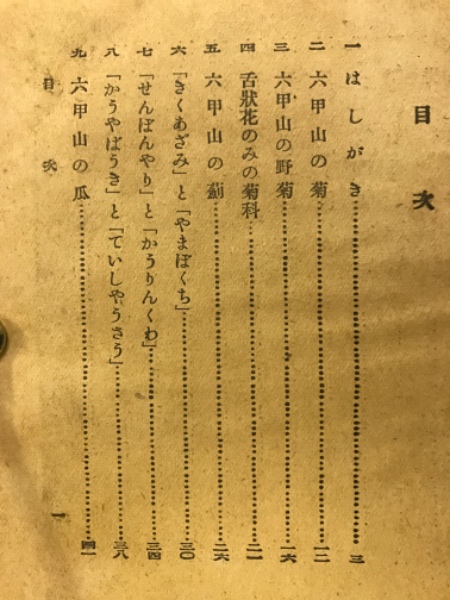 目次
一 はしがき……三
二 六甲山の菊……一二
三 六甲山の野菊……一六
四 舌狀花のみの菊科……二一
五 六甲山の薊……二六
六 「きくあざみ」と「やまぼくち」……三〇
七 「せんぼんやり」と「かうりんくわ」……三四
八 「かうやばうき」と「ていしやうさう」……三八
九 六甲山の瓜……四一
目次
一